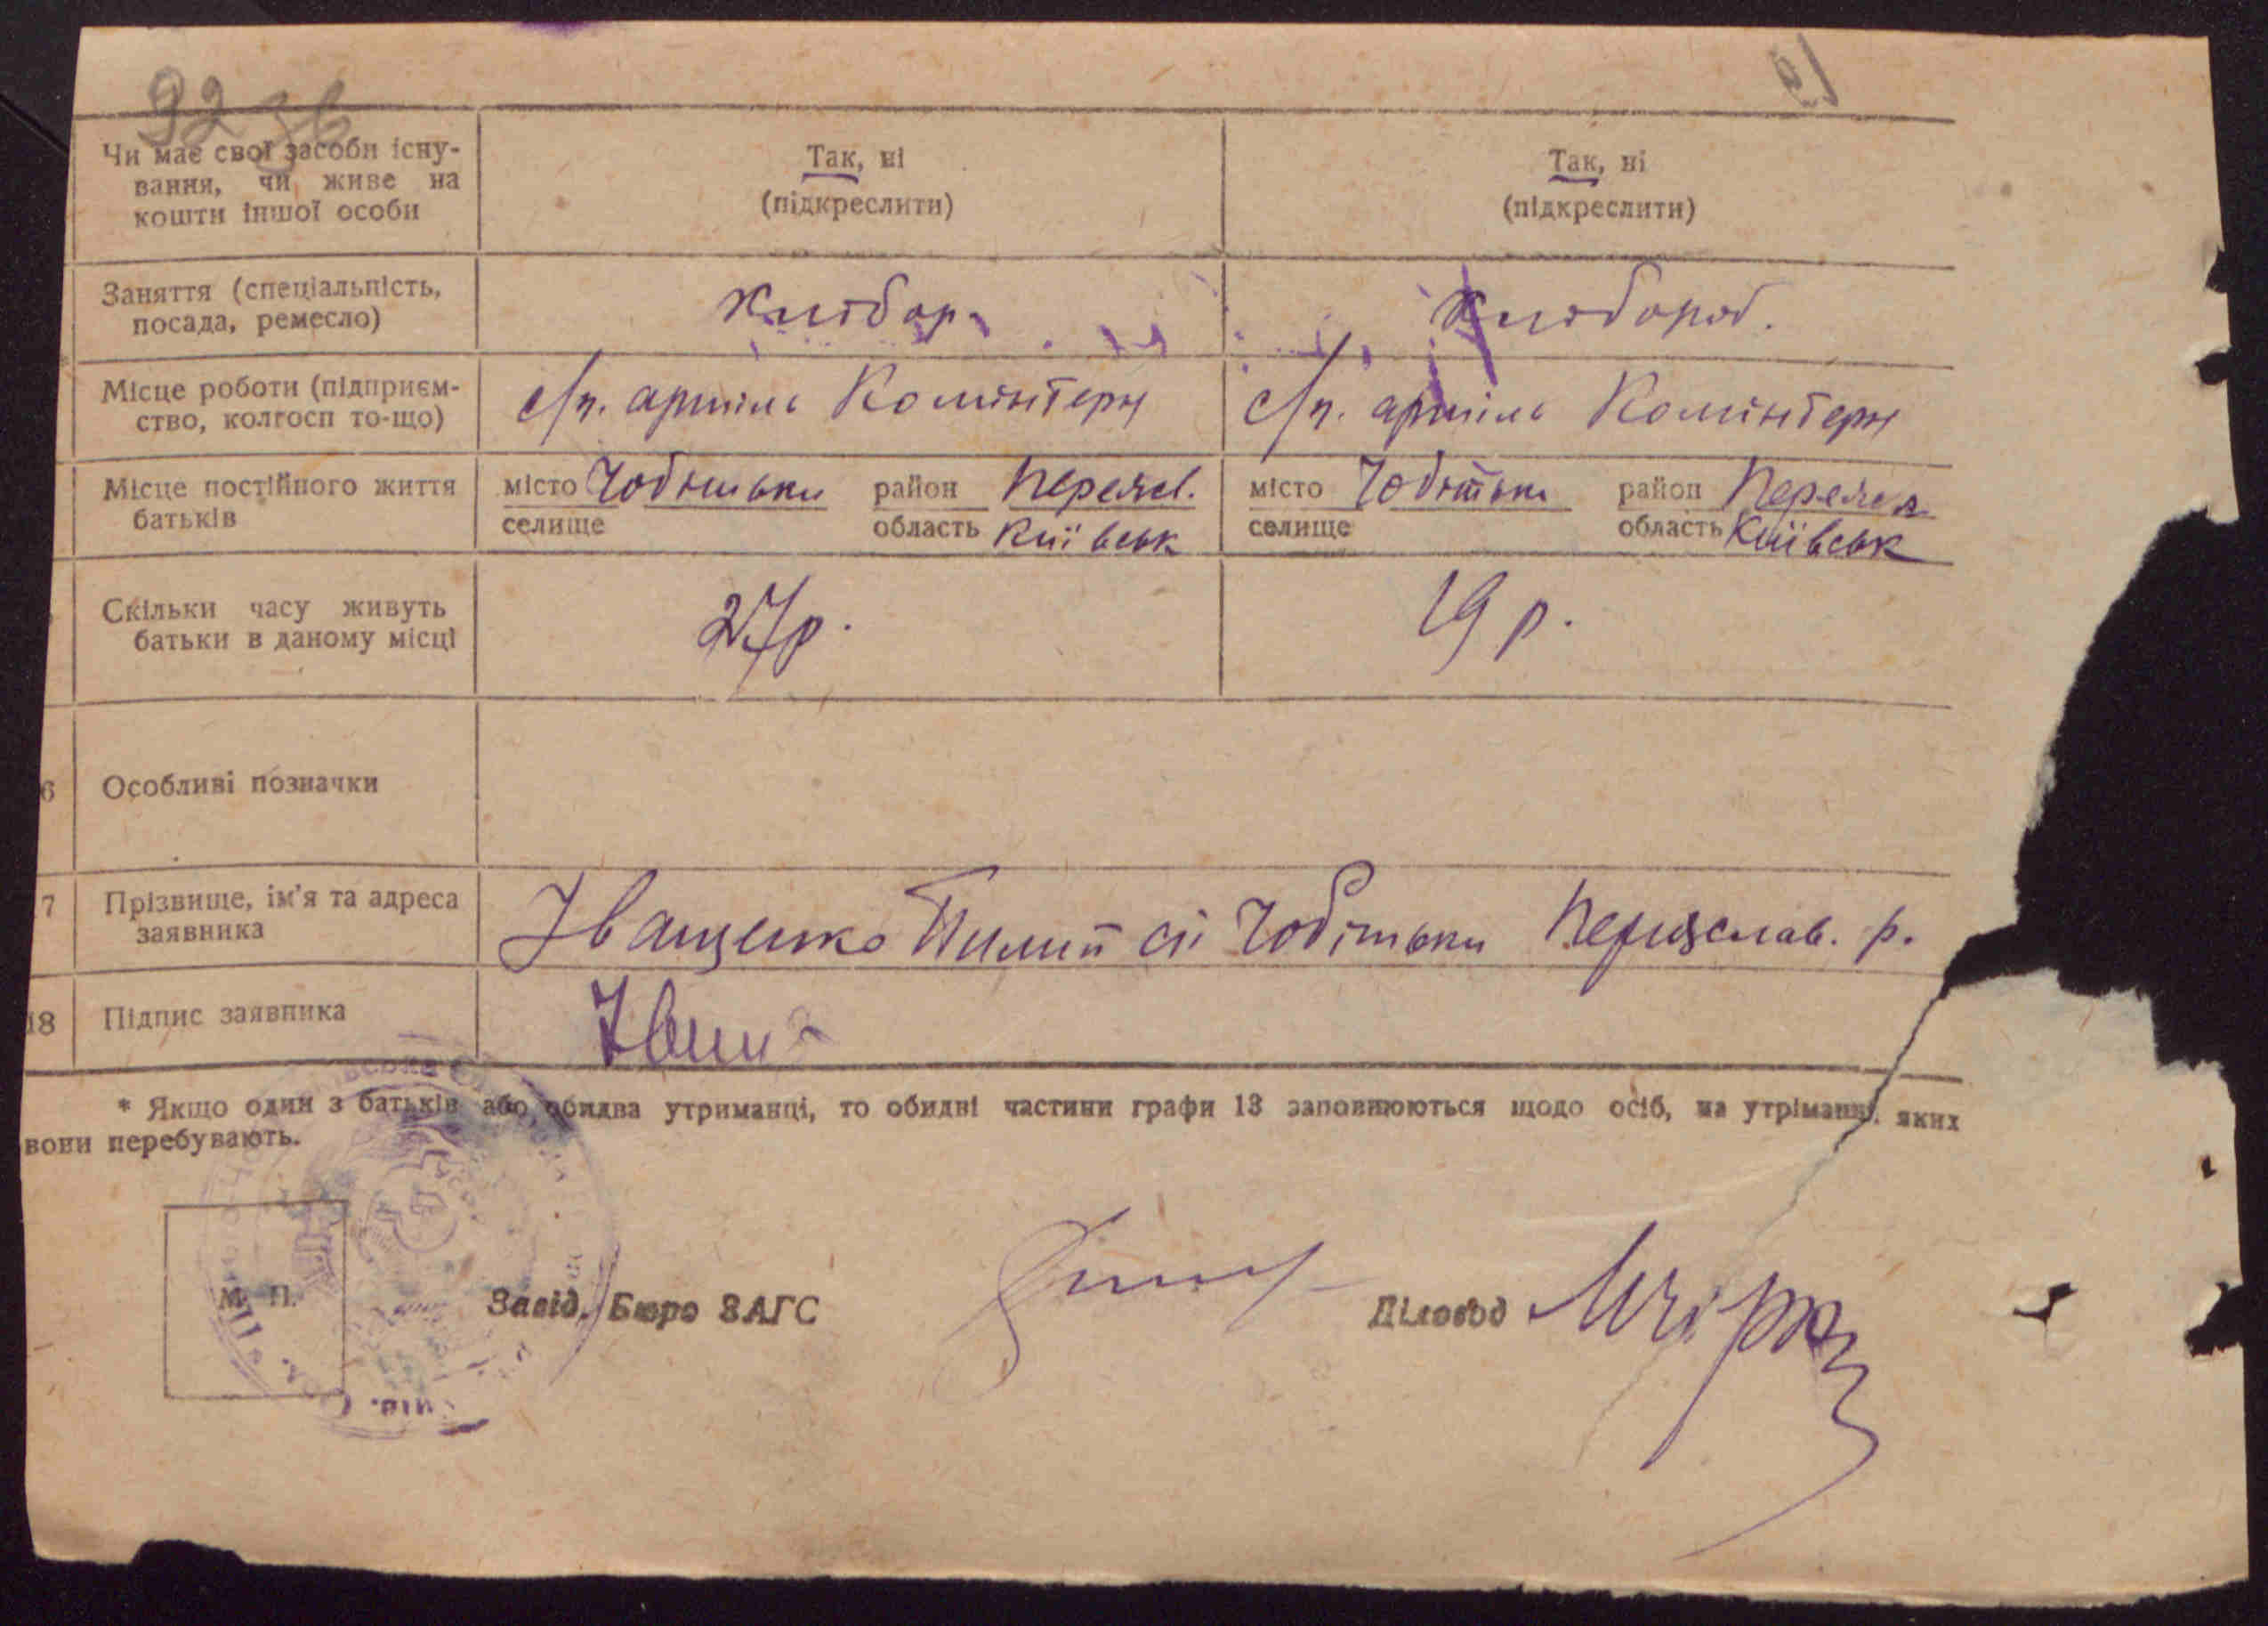 92 зв
Чи має свої засоби існу-
вання, чи живе на
кошти іншої особи
Так, ні
(підкреслити)
Так, ні
(підкреслити)
Заняття (спеціальність,
посада, ремесло)
хлібор.
хлібороб.
Місце роботи (підприєм-
ство, колгосп то-що)
с/г. артіль Комінтерн
с/г. артіль Комінтерн
Місце постійного життя
батьків
місто Чобітьки район Переясл.
селище область Київськ
місто Чобітьки район Переясл
селище область Київськ
Скільки часу живуть
батьки в даному місці
27 р.
19 р.
6 Особливі позначки
7 Прізвище, ім'я та адреса
заявника
Іващенко Пилип с. Чобітьки Переяслав. р.
18 Підпис заявника
* Якщо один з батьків або обидва утриманці, то обидві частини графи 13 заповнюються щодо осіб, на утріманні яких
вони перебувають.
М. П.
Завід. Бюро ЗАГС
Діловод